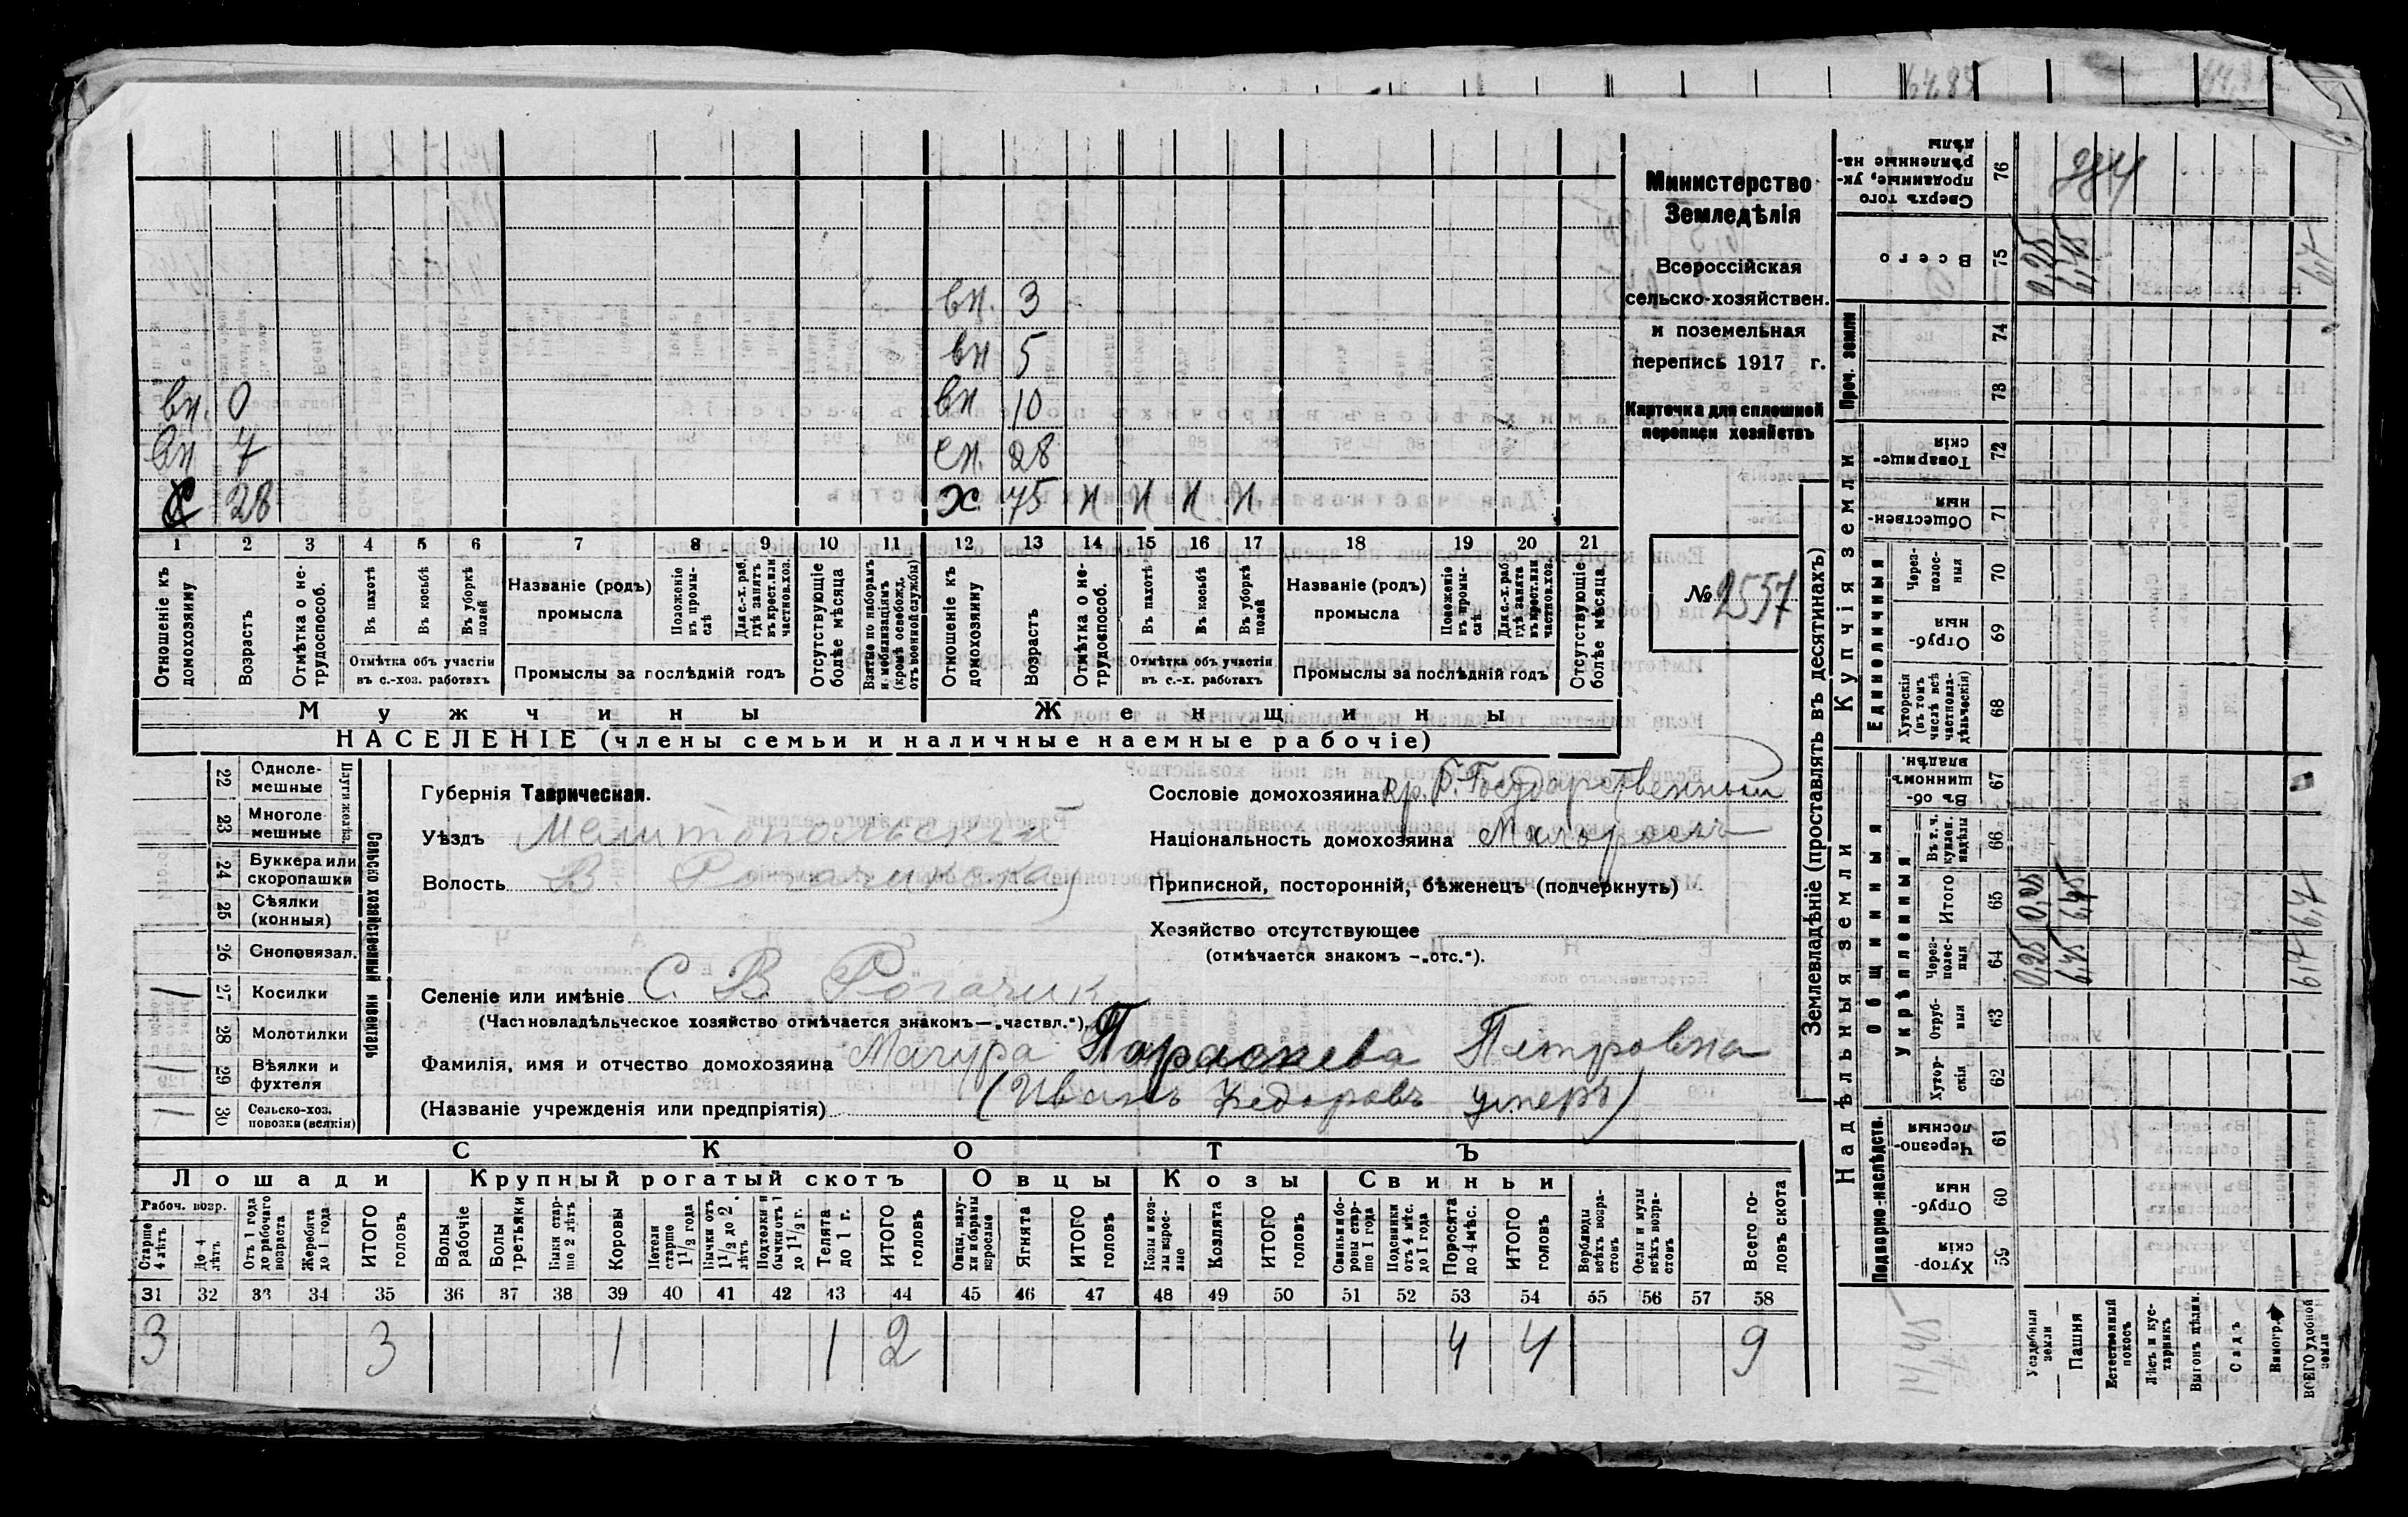 вн. 3
вн 5
вн. 0 вн 10
вн 7 сн. 28
С 28 х 75 н н н н
1 2 3 4 5 6 7 8 9 10 11 12 13 14 15 16 17 18 19 20 21
Отношеніе къ домохозяину
Возрастъ
Отмѣтка о не-трудоспособ.
Въ пахотѣ
Въ косьбѣ
Въ уборкѣ полей
Отмѣтка объ участіи въ с.-хоз. работахъ
Названіе (родъ) промысла
Положеніе въ промы-слѣ
Для с.-х. раб. гдѣ занятъ въ крест. или частнов. хоз.
Промыслы за послѣдній годъ
Отсутствующіе болѣе мѣсяца
Взятые по наборамъ и мобилизаціямъ (кромѣ освобожд. отъ военной службы)
Отношеніе къ домохозяину
Возрастъ
Отмѣтка о не-трудоспособ.
Въ пахотѣ
Въ косьбѣ
Въ уборкѣ полей
Отмѣтка объ участіи въ с.-х. работахъ
Названіе (родъ) промысла
Положеніе въ промы-слѣ
Для с.-х. раб. гдѣ занята въ крест. или частнов. хоз.
Промыслы за послѣдній годъ
Отсутствующіе болѣе мѣсяца
Мужчины Женщины
НАСЕЛЕНІЕ (члены семьи и наличные наемные рабочіе)
Министерство
Земледѣлія
Всероссійская
сельско-хозяйствен.
и поземельная
перепись 1917 г.
Карточка для сплошной
переписи хозяйствъ
№ 2557
Сельско хозяйственный инвентарь
Плуги желѣз.
22 Одноле-мешные
23 Многоле мешные
24 Буккера или скоропашки
25 Сѣялки (конныя)
26 Сноповязал.
27 Косилки 1
28 Молотилки
29 Вѣялки и фухтеля 1
30 Сельско-хоз. повозки (всякія) 1
Губернія Таврическая.
Уѣздъ Мелитопольскій
Волость В Рогачикская
Селеніе или имѣніе С. В. Рогачик
(Частновладѣльческое хозяйство отмѣчается знакомъ—„частвл.“).
Фамилія, имя и отчество домохозяина Мачура Параскева Петровна
(Названіе учрежденія или предпріятія) (Иванъ Федоровъ умеръ)
Сословіе домохозяина кр. б. Государственный
Національность домохозяина Малороссъ
Приписной, посторонній, бѣженецъ (подчеркнуть)
Хозяйство отсутствующее
(отмѣчается знакомъ —„отс.“).
СКОТЪ
Лошади Крупный рогатый скотъ Овцы Козы Свиньи
Рабоч. возр.
Старше 4 лѣтъ
До 4 лѣтъ
Отъ 1 года до рабочаго возраста
Жеребята до 1 года
ИТОГО головъ
Волы рабочіе
Волы третьяки
Быки стар-ше 2 лѣтъ
Коровы
Нетели старше 1 1/2 года
Бычки отъ 1 1/2 до 2 лѣтъ
Подтелки и бычки отъ 1 до 1 1/2 г.
Телята до 1 г.
ИТОГО головъ
Овцы, валу-хи и бараны взрослые
Ягнята
ИТОГО головъ
Козы и коз-лы взрос-лые
Козлята
ИТОГО головъ
Свиньи и бо-ровы стар-ше 1 года
Подсвинки отъ 4 мѣс. до 1 года
Поросята до 4 мѣс.
ИТОГО головъ
Верблюды всѣхъ возра-стовъ
Ослы и мулы всѣхъ возра-стовъ
Всего го-ловъ скота
31 32 33 34 35 36 37 38 39 40 41 42 43 44 45 46 47 48 49 50 51 52 53 54 55 56 57 58
3 3 1 1 2 4 4 9
Землевладѣніе (проставлять въ десятинахъ)
Купчія земли
Надѣльныя земли
Проч. земли
Единоличныя
Общинныя
Укрѣпленныя
Подворно-наслѣдств.
Сверхъ того проданные, ук-рѣпленные на-дѣлы 76
Всего 75 0,25 6,45 6,7
74
73
Товарище-скія 72
Обществен-ныя 71
Через-полос-ныя 70
Отруб-ныя 69
Хуторскія (въ томъ числѣ всѣ частновла-дѣльческія) 68
Въ об-щинномъ владѣн. 67
Въ т. ч. куплен. надѣлы 66
Итого 65 0,25 6,45 6,7
Через-полос-ныя 64 0,25 6,45 6,7
Отруб-ныя 63
Хутор-скія 62
Черезпо-лосныя 61
Отруб-ныя 60
Хутор-скія 59
Усадебныя земли
Пашня
Естественный покосъ
Лѣсъ и кус-тарникъ
Выгонъ цѣлин.
Садъ
Виногр.
ВСЕГО удобной земли